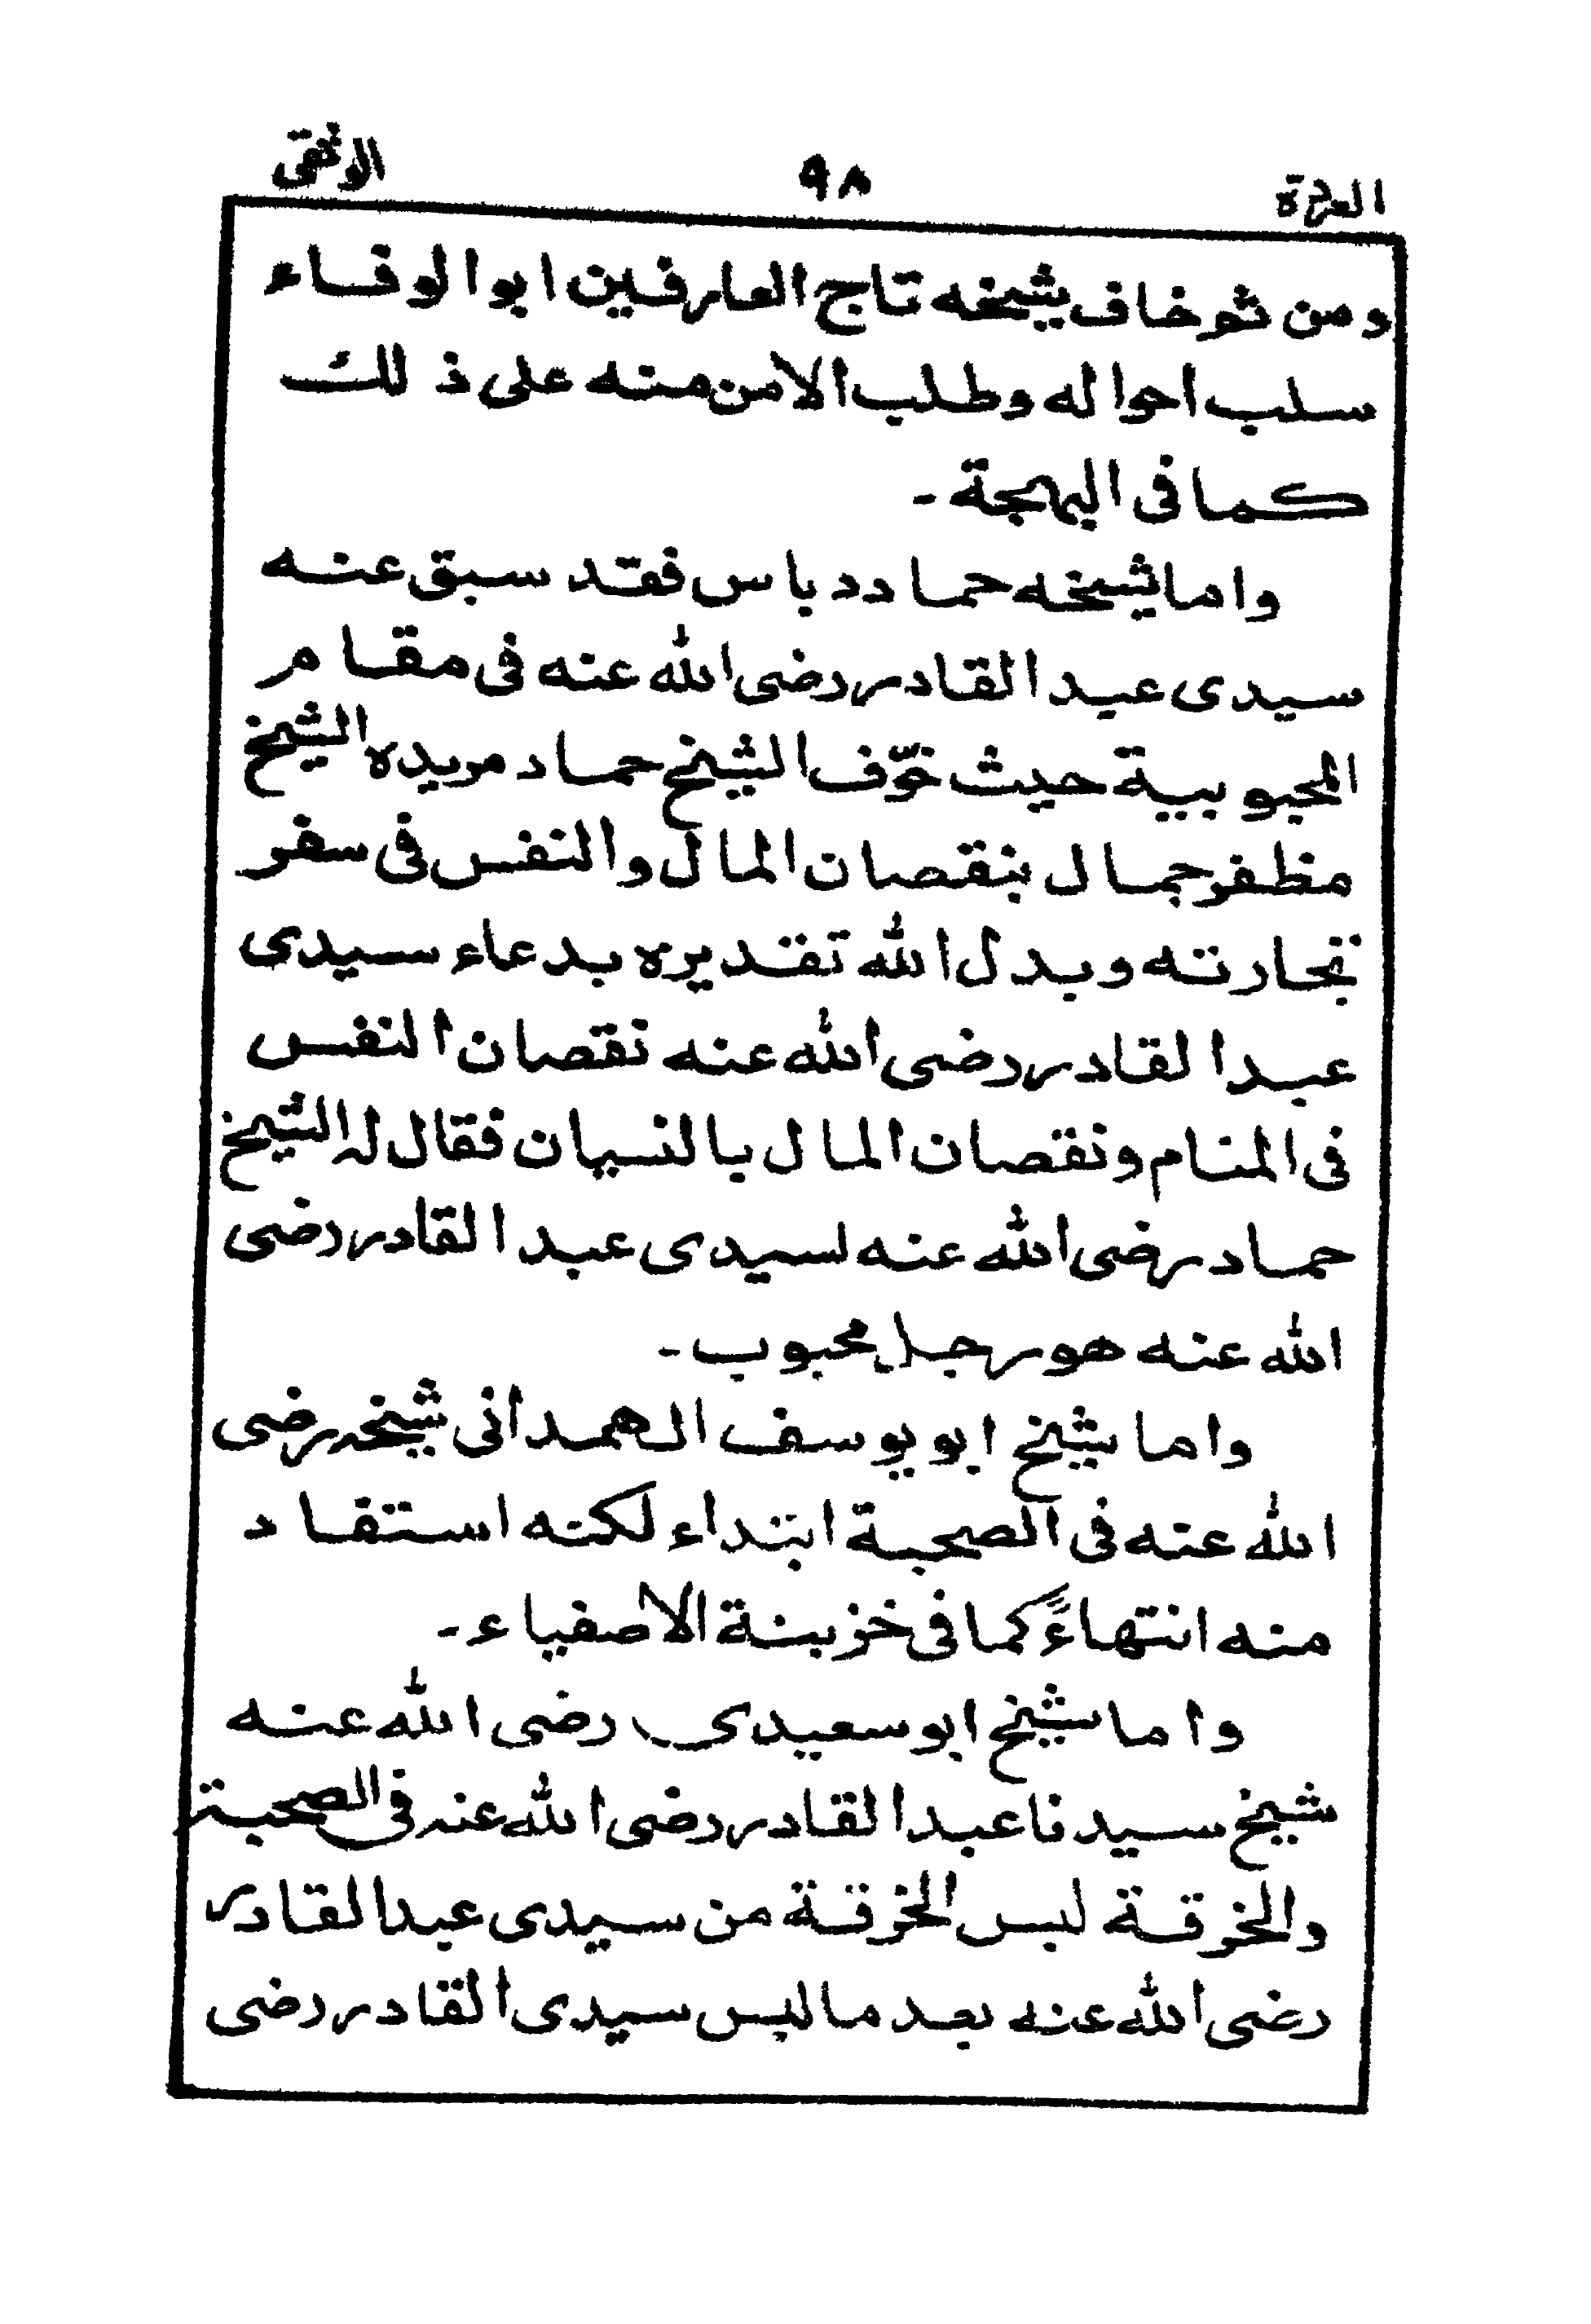 العروة ٩٨ الوثقى
ومن ثم خاف شيخه تاج العارفين ابو الوفاء
سلب احواله وطلب الامن منه على ذلك
كما فى البهجة ۔
واما شيخه حماد دباس فقد سبق عنه
سيدى عبد القادر رضى الله عنه فى مقام
المحبوبية حيث خوّف الشيخ حماد مريده الشيخ
مظفر جمال بنقصان المال والنفس فى سفر
تجارته وبدل الله تقديره بدعاء سيدى
عبد القادر رضى الله عنه نقصان النفس
فى المنام ونقصان المال بالنسيان فقال له الشيخ
حماد رضى الله عنه لسيدى عبد القادر رضى
الله عنه هو رجل محبوب ۔
واما شيخ ابو يوسف الهمدانى شيخه رضى
الله عنه فى الصحبة ابتداء لكنه استفاد
منه انتهاءً كما فى خزينة الاصفياء ۔
واما شيخ ابو سعيدى رضى الله عنه
شيخ سيدنا عبد القادر رضى الله عنه فى الصحبة
والخرقة لبس الخرقة من سيدى عبد القادر
رضى الله عنه بعد ما لبس سيدى القادر رضى